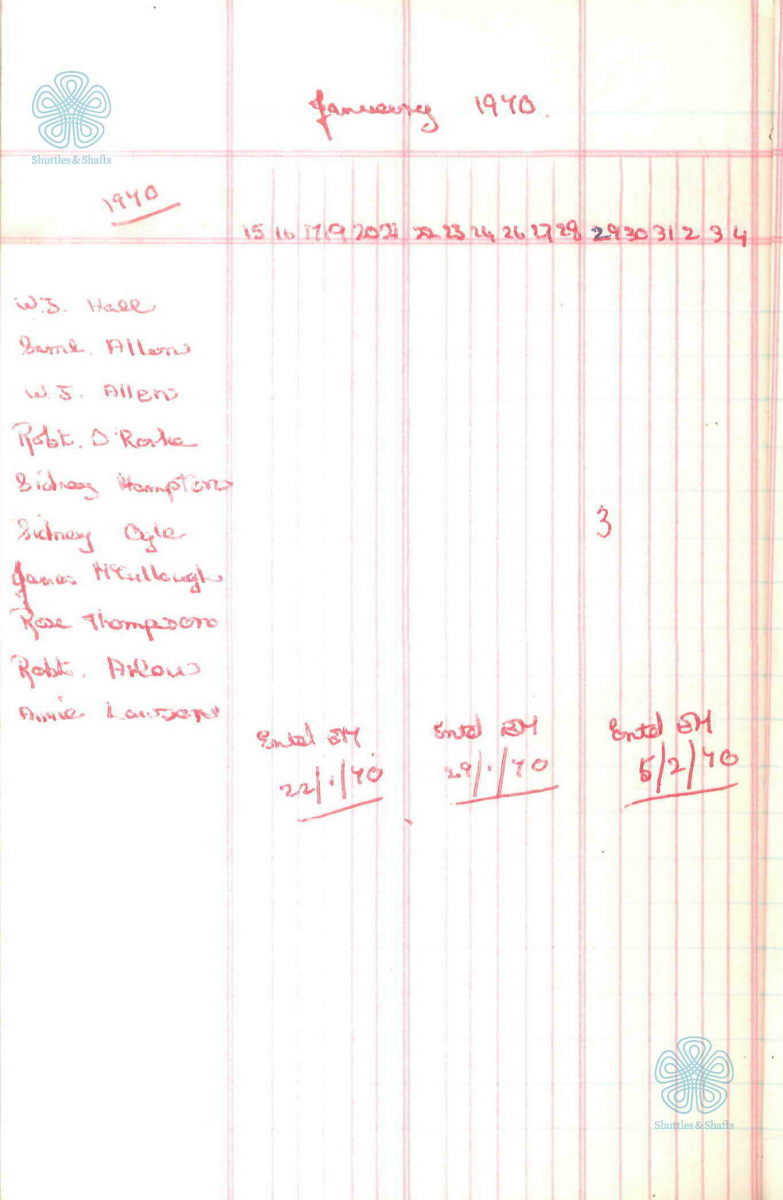 Shuttles & Shafts
January 1970.
1970
15 16 17 19 20 21 22 23 24 26 27 28 29 30 31 2 3 4
W.J. Hall
Saml. Allen
W.J. Allen
Robt. O'Rorke
Sidney Hampton
Sidney Ogle
3
James McCullough
Rose Thompson
Robt.
Annie Lawson
Entd EM Entd EM Entd EM
22/1/70 29/1/70 5/2/70
Shuttles & Shafts